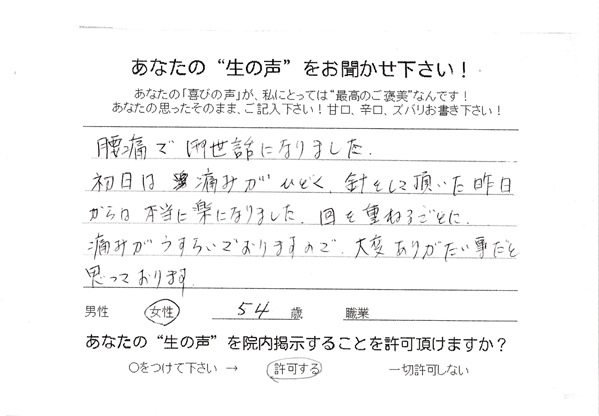 あなたの“生の声”をお聞かせ下さい！
あなたの「喜びの声」が、私にとっては“最高のご褒美”なんです！
あなたの思ったそのまま、ご記入下さい！甘口、辛口、ズバリお書き下さい！
腰痛で御世話になりました。
初日は 痛みがひどく、針をして頂いた昨日
からは本当に楽になりました。回を重ねるごとに、
痛みがうすらいでおりますので、大変ありがたい事だと
思っております。
男性 女性 54 歳 職業
あなたの“生の声”を院内掲示することを許可頂けますか？
〇をつけて下さい → 許可する 一切許可しない